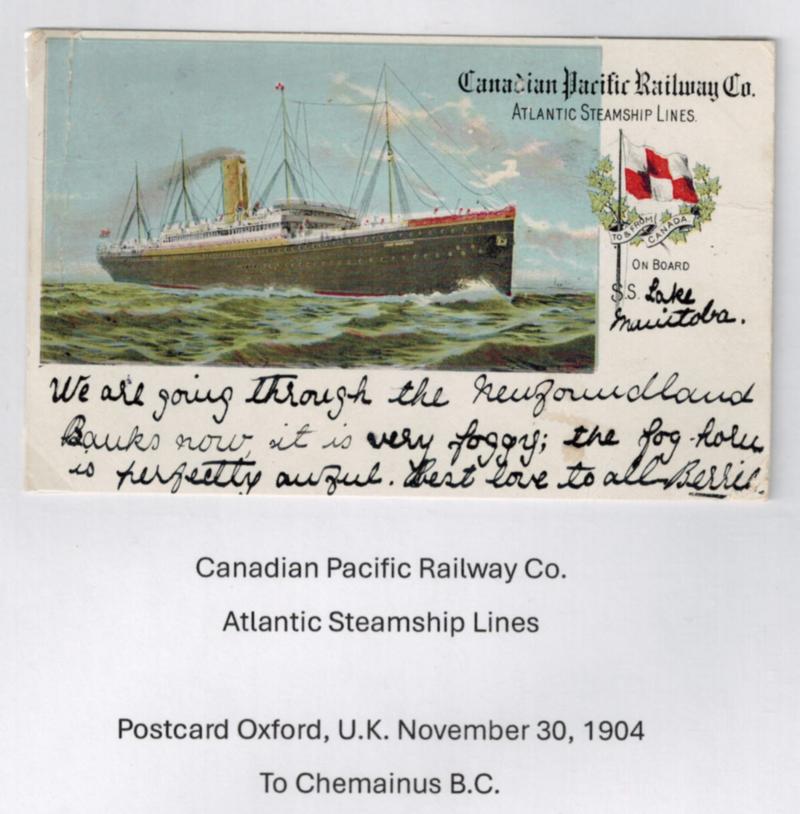 Canadian Pacific Railway Co.
ATLANTIC STEAMSHIP LINES.
TO & FROM CANADA
ON BOARD
S.S. Lake
Manitoba.
We are going through the Newfoundland
Banks now, it is very foggy; the fog-horn
is perfectly awful. Best love to all Berril.
Canadian Pacific Railway Co.
Atlantic Steamship Lines
Postcard Oxford, U.K. November 30, 1904
To Chemainus B.C.